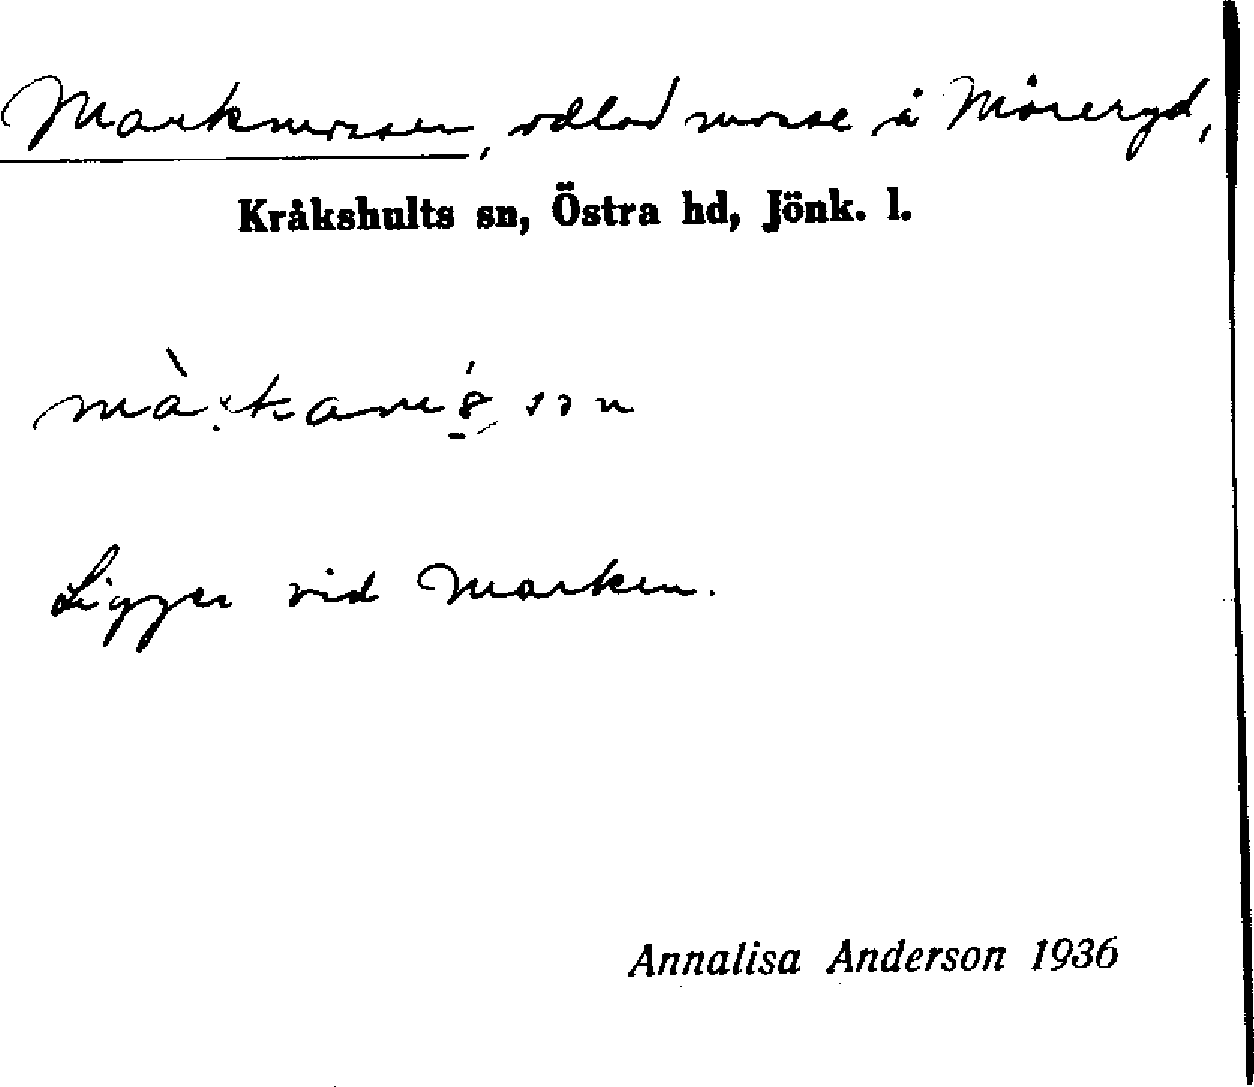 Markmossen, odlad mosse å Måreryd,
Kråkshults sn, Östra hd, Jönk. l.
Ligger vid Marken.
Annalisa Anderson 1936